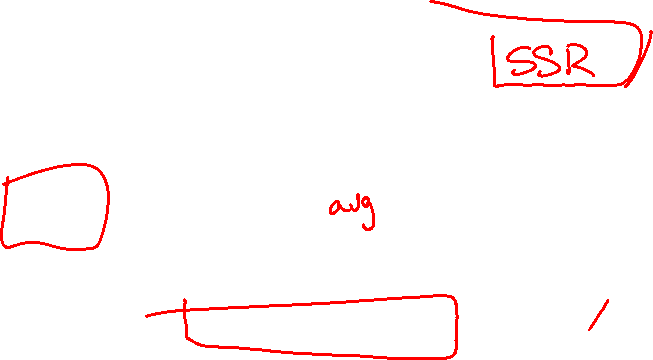 SSR
avg